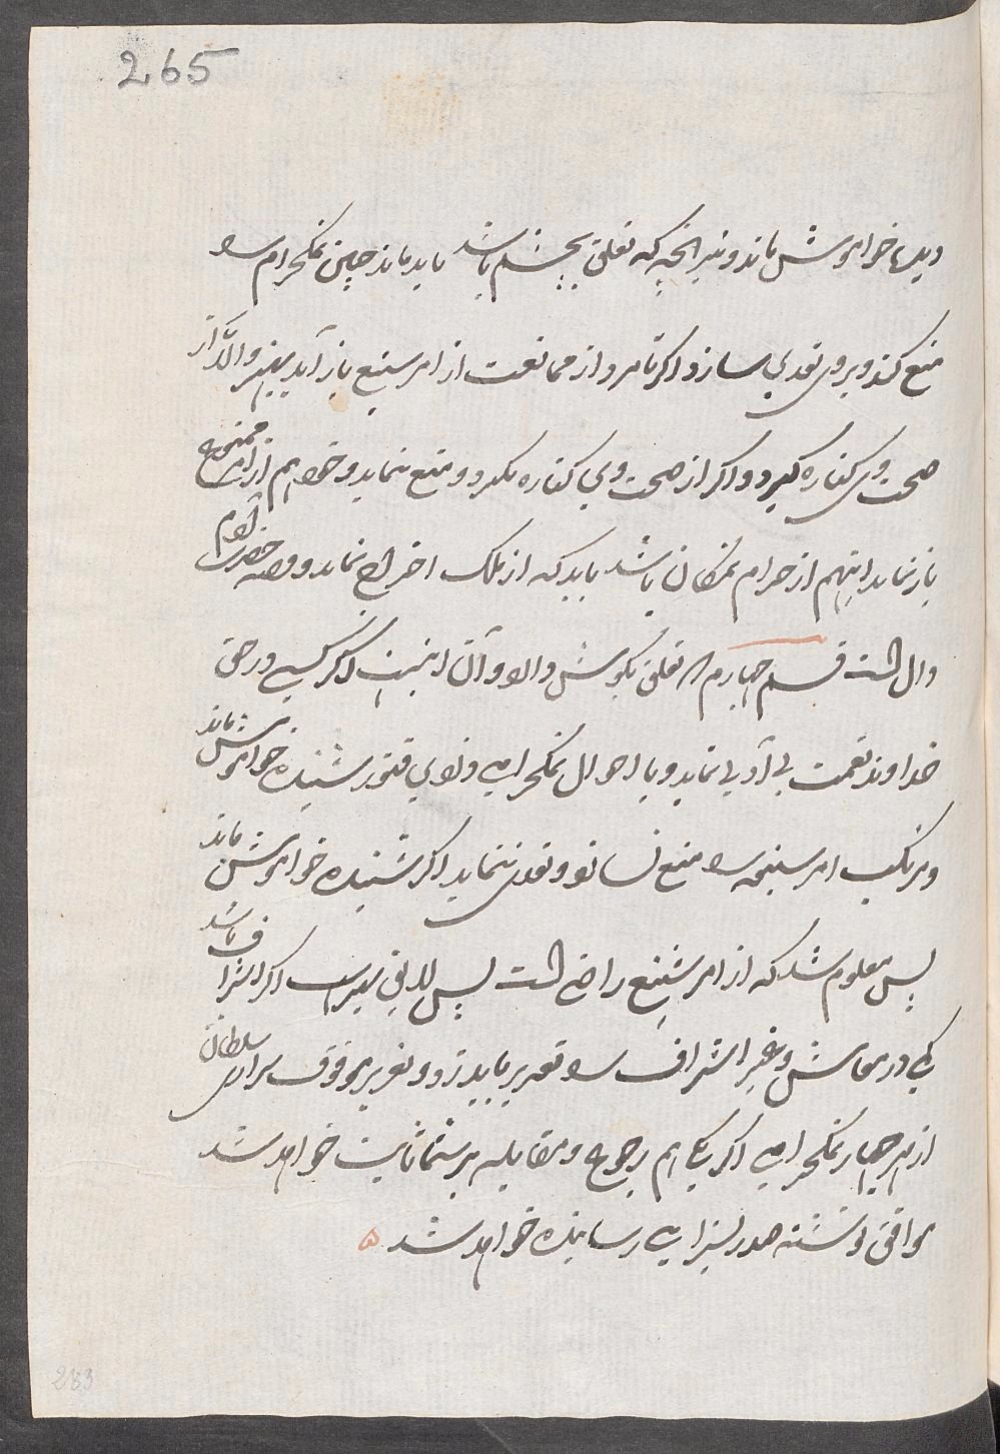 265
دیده خواموش ماند و نیز آنچه که تعلق بچشم باشد باید ماند چنین نمکحرام را
منع کند و بروی تعدی سازد اگر نامرد از ممانعت از امر شنیع باز آید بهتر والّا از
صحبت وی کناره گیرد و اگر از صحبت وی کناره نگیرد و منع ننماید و خود هم از امر ممنوع
باز نماند اینهم از حرام نمکان باشد باید که از ملک اخراج نماید و قصه حضرت آدم
دال است قسم چهارم تعلق بگوش دارد و آن اینست اگر کسی در حق
خداوند نعمت بی آدبی نماید و یا احوال نمکحرامی وندوی فتور شنیده خواموش ماند
ومرتکب امر سنیعه را منع لسانی و تعدی ننماید اگر شنیده خواموش ماند
پس معلوم شد که از امر شنیع راضی است پس لایق اگر اشراف باشد
یکی در معاش و غیر اشراف را تعزیر باید زد و تعزیر موقوف برای سلطان
از هر چهار نمکحرامی اگر یکی هم رجوع و مقابله بر شما ثابت خواهد شد
موافق نوشته صدر بسزای رسانیده خواهد شد ه
283